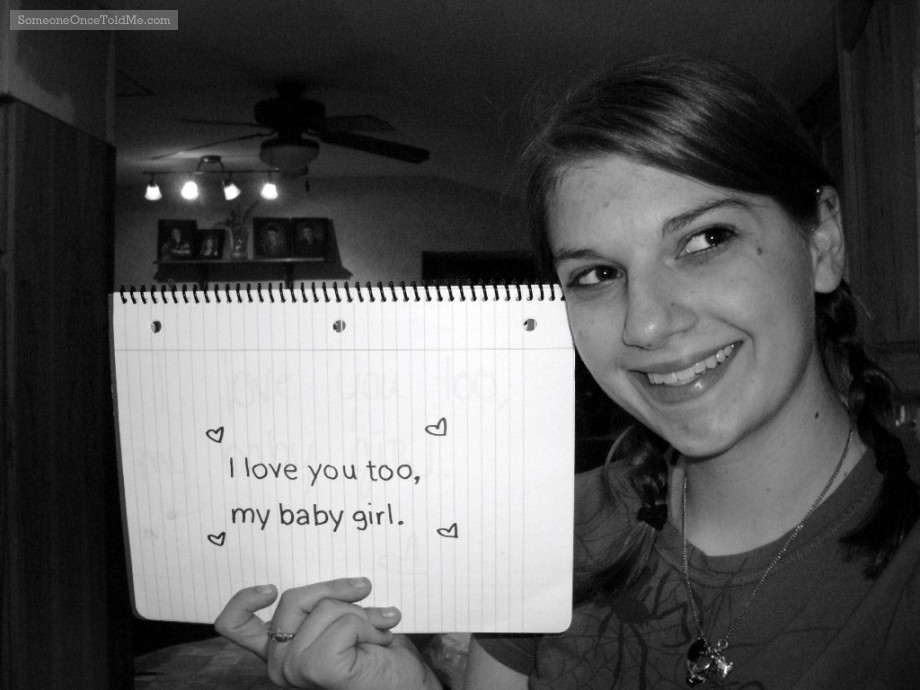 SomeoneOnceToldMe.com
I love you too,
my baby girl.